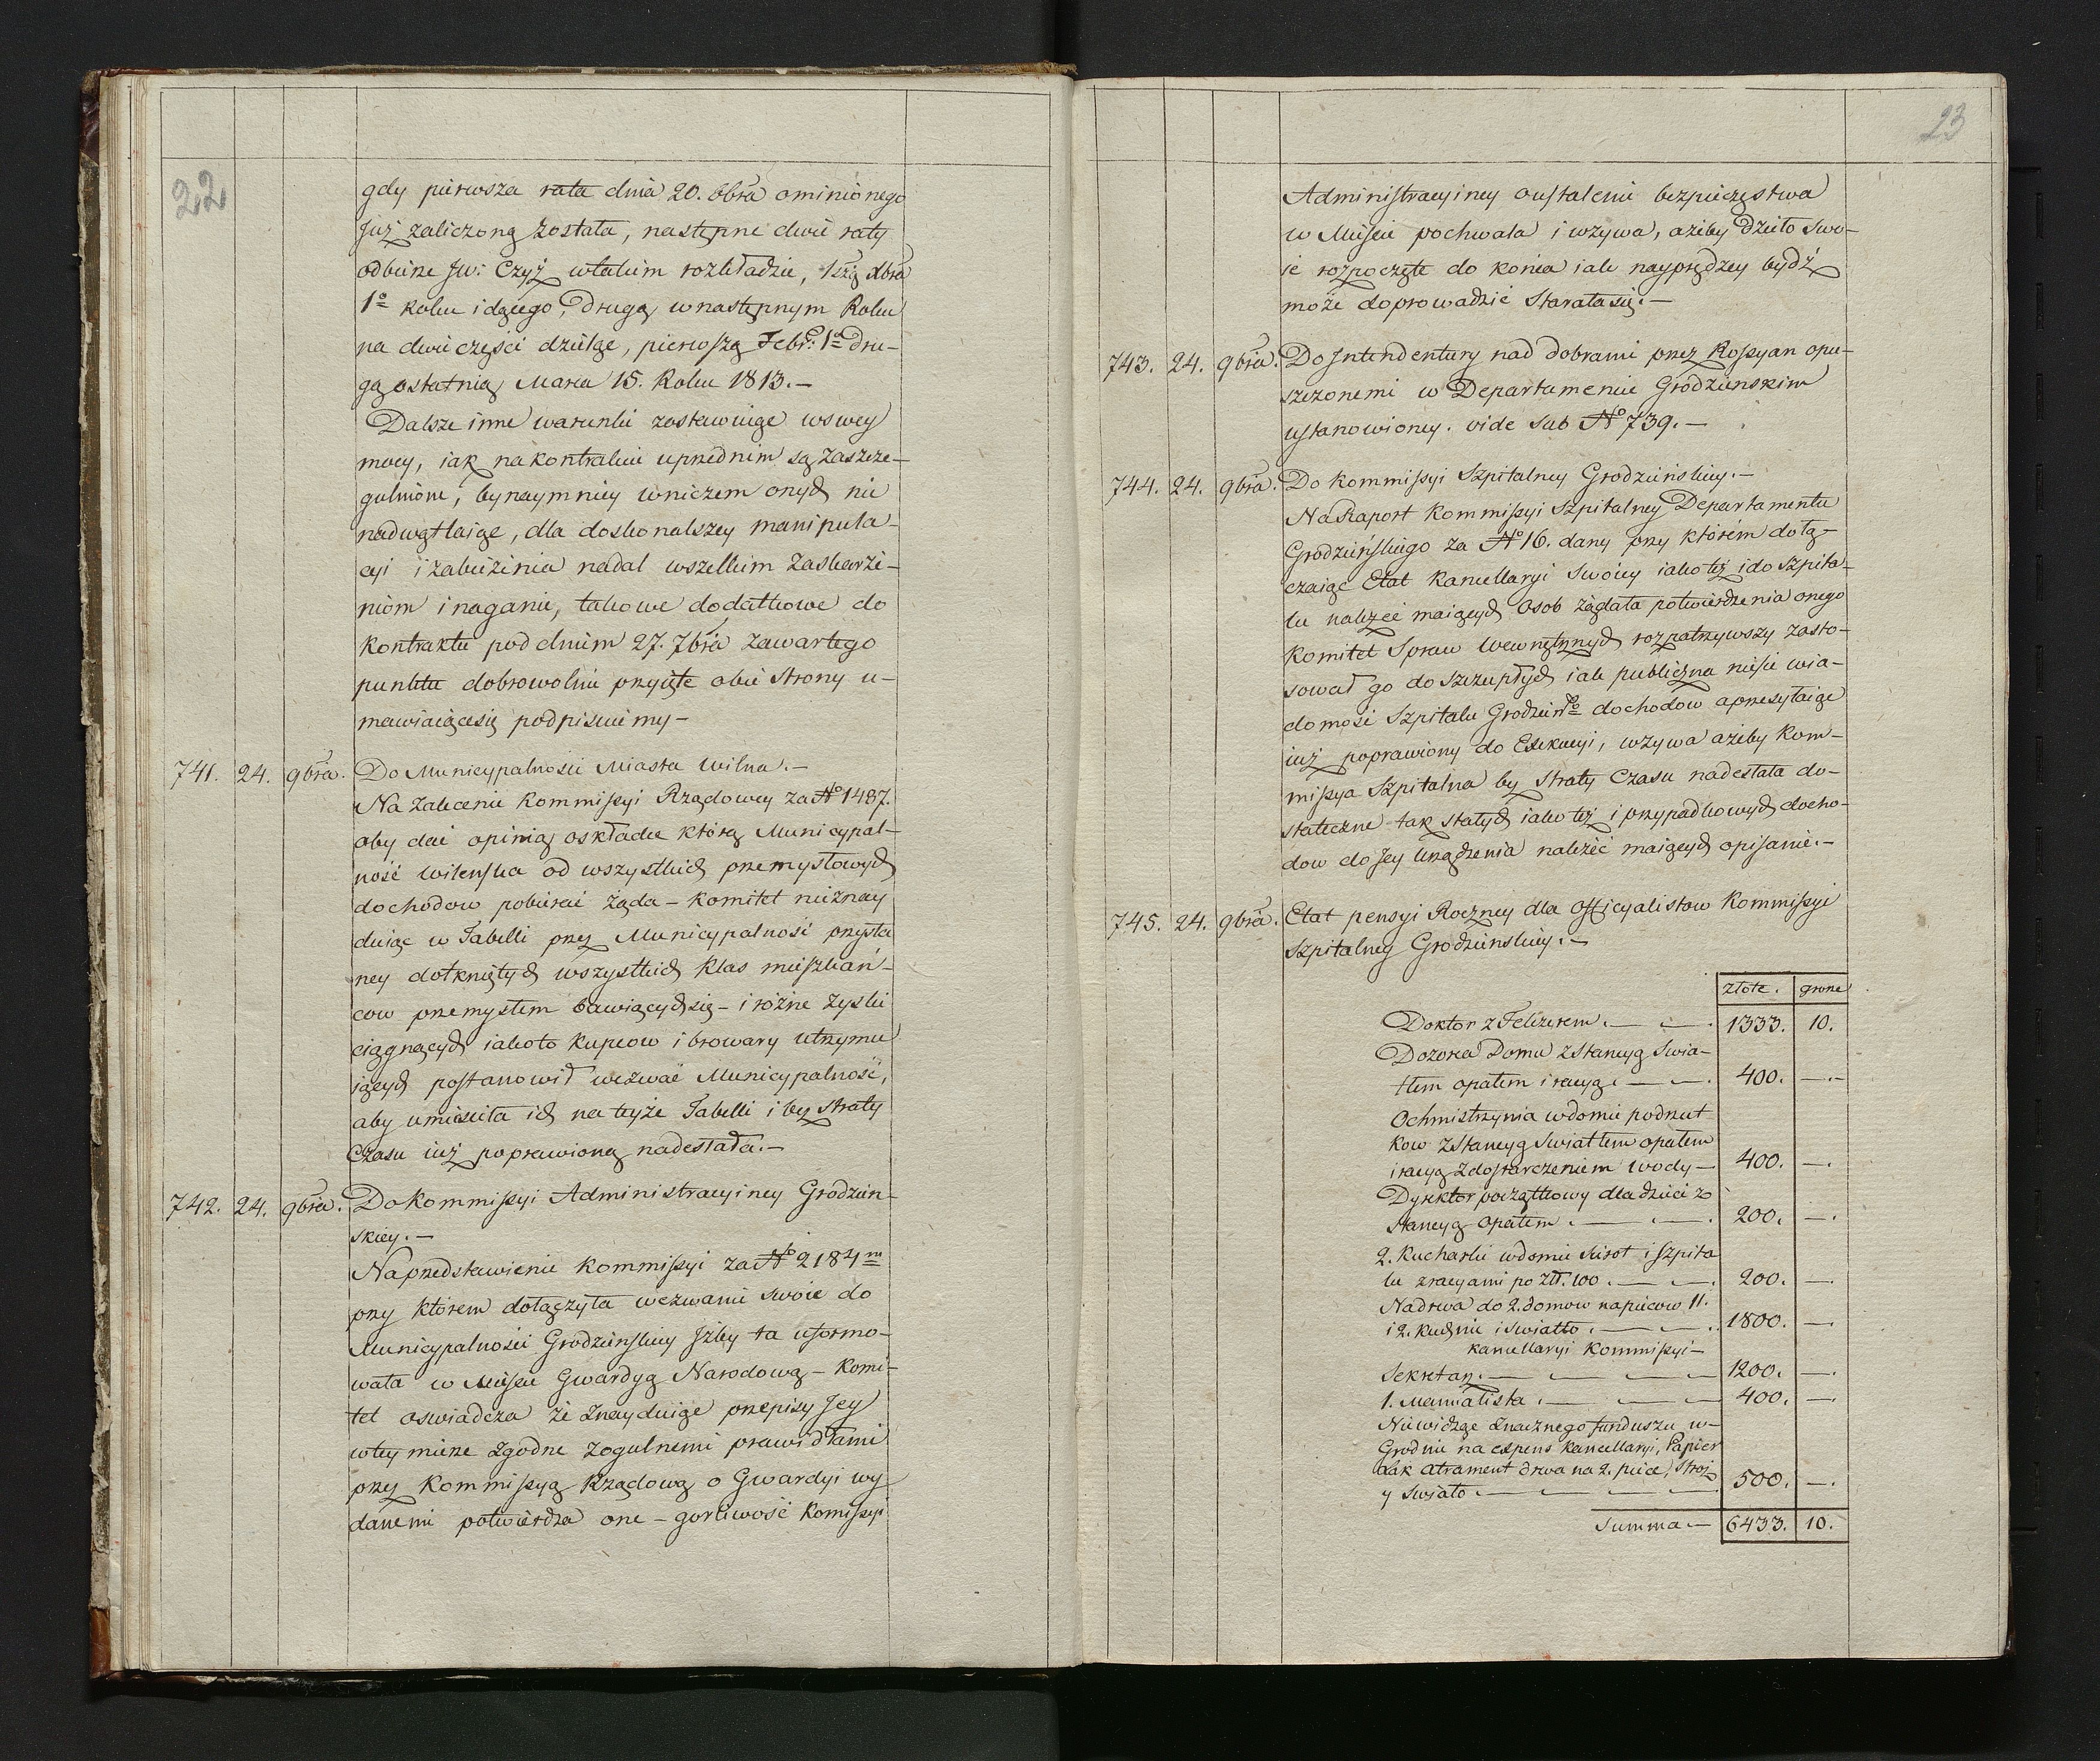 22
gdy pierwsza rata dnia 20. 8bra ominionego
już zaliczoną została, następne dwie raty
odbierze JW: Czyż w takim rozkładzie, 1szą Xbra
1o Roku idącego, drugą w następnym Roku
na dwie części dzieląc, pierwszą Febr: 1a dru-
gą ostatnią Marca 15. Roku 1813.—
Dalsze inne warunki zostawuiąc w swey
mocy, iak na kontrakcie uprzednim są zaszcze-
gulnione, bynaymniey w niczem onych nie
nadwątlaiąc, dla doskonalszey manipula-
cyi i zabieżenia nadal wszelkim zaskarże-
niom i naganie, takowe dodatkowe do
kontraktu pod dniem 27. 7bra zawartego
punkta dobrowolnie przyięte obie strony u-
mawiaiące się podpisuiemy—
741. 24. 9bra. Do Municypalności Miasta Wilna.—
Na zalecenie Kommissyi Rządowey za No 1487.
aby dać opinią o składce którą Municypal-
ność Wileńska od wszystkich przemysłowych
dochodow pobierać żąda – Komitet nieznay
duiąc w Tabelli przez Municypalność przysła
ney dotkniętych wszystkich klas mieszkań-
cow przemysłem bawiących się – i różne zyski
ciągnących iakoto kupcow i browary utrzymu
iących postanowił wezwać Municypalność,
aby umieściła ich na teyże Tabelli i bez straty
czasu iuż poprawioną nadesłała.—
742. 24. 9bra. Do Kommissyi Administracyiney Grodzień-
skiey.—
Na przedstawienie Kommissyi za No 2184m
przy ktorem dołączyła wezwanie swoie do
Municypalności Grodzieńskiey iżby ta uformo-
wała w Mieście Gwardyą Narodową – Komi-
tet oswiadcza że znayduiąc przepisy Jey
w tey mierze zgodne z ogulnemi prawidłami
przez Kommissyą Rządową o Gwardyi wy
danemi potwierdza one – gorliwość Komissyi
23
Administracyiney o ustaleniu bezpieczęstwa
w Mieście pochwala i wzywa, ażeby dzieło swo-
ie rozpoczęte do końca iak nayprędzey bydź
może doprowadzić starała się.—
743. 24. 9bra. Do Intendentury nad dobrami przez Rossyan opu-
szczonemi w Departamencie Grodzienskim
ustanowioney. vide sub No 739.—
744. 24. 9bra. Do Kommissyi Szpitalney Grodzieńskiey.—
Na Raport Kommissyi Szpitalney Departamentu
Grodzieńskiego za No 16. dany przy którém dołą-
czaiąc Etat Kancellaryi swoiey iako też i do szpita-
lu należeć maiących osob żądała potwierdzenia onego
Komitet Spraw Wewnętrznych rozpatrzywszy zasto-
sował go do szczupłych iak publiczna niesie wia-
domość Szpitalu Grodzieńgo dochodow a przesyłaiąc
iuż poprawiony do Exekucyi, wzywa ażeby Kom-
missya Szpitalna bez straty czasu nadesłała do-
stateczne tak stałych iako też i przypadkowych docho-
dow do Jey urządzenia należeć maiących opisanie.—
745. 24. 9bra. Etat pensyi Roczney dla Officyalistow Kommissyi
Szpitalney Grodzienskiey.—
złote. grosze
Doktor z Felczerem.— 1333. 10.
Dozorca Domu z stancyą świa-
tłem opałem i racyą.— 400. —.—
Ochmistrzynia w domie podrzut
kow z stancyą swiatłem opałem
i racyą z dostarczeniem wody— 400. —.
Dyrektor początkowy dla dzieci z
stancyą opałem.— 200. —.
2. Kucharki w domie sierot i szpita
lu z racyami po złł. 100.— 200. —.
Na drwa do 2. domow na piecow 11.
i 2. kuchnie i światło.— 1800. —.
Kancellaryi Kommissyi—
Sekretarz.— 1200. —.
1. Manualista.— 400. —.
Nie widząc znacznego funduszu w—
Grodnie na expens Kancellaryi, Papier
Lak atrament drwa na 2. piece, stroż
y swiato.— 500. —.
Summa.— 6433. 10.